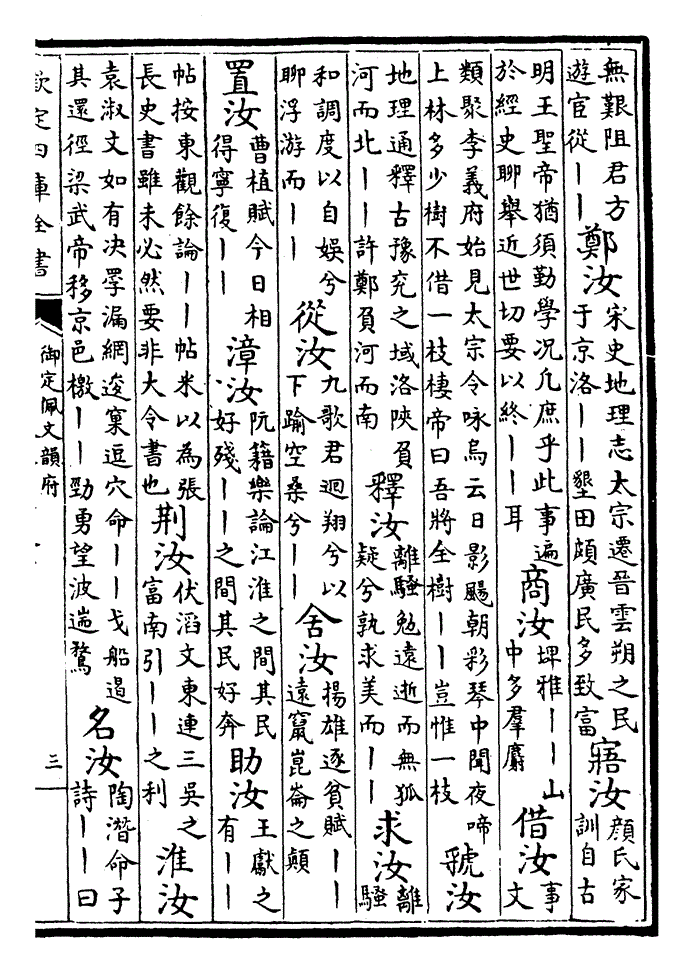 無艱阻君方遊官從丨丨鄭汝宋史地理志太宗遷晉雲朔之民于京洛丨丨墾田頗廣民多致富寤汝顏氏家訓自古
明王聖帝猶須勤學况凡庶乎此事遍於經史聊舉近世切要以終丨丨耳商汝埤雅丨丨山中多羣麝借汝事文
類聚李義府始見太宗令咏烏云日影颺朝彩琴中聞夜啼上林多少樹不借一枝棲帝曰吾將全樹丨丨豈惟一枝虢汝
地理通釋古豫兖之域洛陝負河而北丨丨許鄭負河而南釋汝離騷勉遠逝而無狐疑兮孰求美而丨丨求汝離騷
和調度以自娛兮聊浮游而丨丨從汝九歌君迴翔兮以下踰空桑兮丨丨舍汝揚雄逐貧賦丨丨遠竄崑崙之顛
置汝曹植賦今日相得寧復丨丨漳汝阮籍樂論江淮之間其民好殘丨丨之間其民好奔助汝王獻之有丨丨
帖按東觀餘論丨丨帖米以為張長史書雖未必然要非大令書也荆汝伏滔文東連三吳之富南引丨丨之利淮汝
袁淑文如有決罜漏網逡窠逗穴命丨丨戈船遏其還徑梁武帝移京邑檄丨丨勁勇望波遄騖名汝陶潛命子詩丨丨曰
欽定四庫全書
御定佩文韻府
三